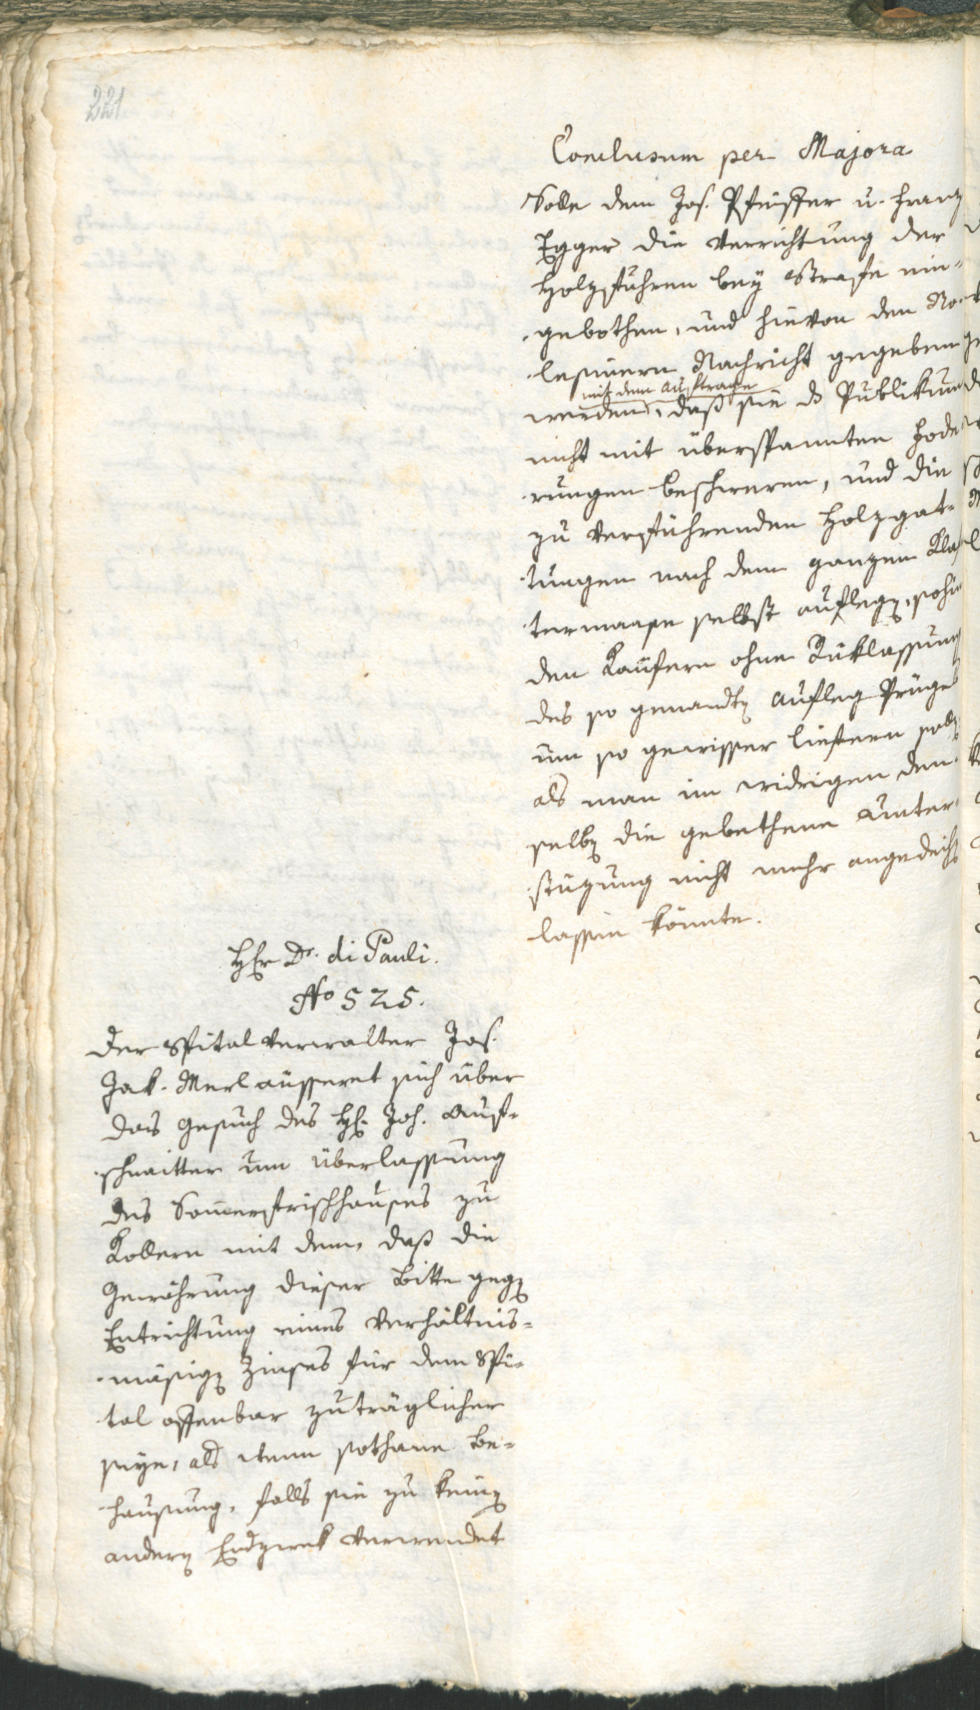 221
Conclusum per Majora
Solle dem Jos. Pfeiffer u. Franz
Egger die Verrichtung der
Holzfuhren bey Strafe ein-
gebothen, und hievon den No-
lesinern Nachricht gegeben
mit dem Auftrage
werden, daß sie ds Publikum
nicht mit überspannten Fode
rungen beschweren, und die
zu verführenden Holzgat-
tungen nach dem ganzen Klaf
termaase selbst auflegen, sohin
den Kaüfern ohne Rüklassung
des so genandten Aufleg Prügel
um so gewisser liefern sollen
als man im widrigen den-
selben die gebethene Unter-
stüzung nicht mehr angedeihen
lassen könnte.
HEr Dr. di Pauli.
No 525.
Der Spital Verwalter Jos.
Jak. Merl aüsseret sich über
das Gesuch des H. Joh. Auf-
schnaitter um Überlassung
des Somerfrischhauses zu
Kollern mit dem, daß die
Gewährung dieser Bitte gegen
Entrichtung eines Verhältnis-
mäsigen Zinses für dem Spi-
tal offenbar zuträglicher
seye, als wenn sothane Be-
hausung, falls sie zu keinen
andern Endzwek verwendet